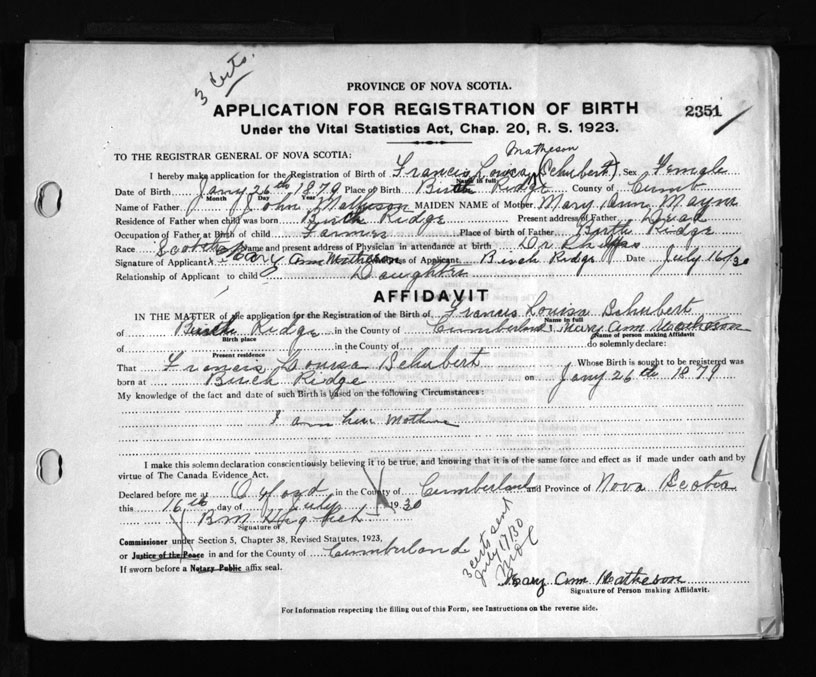 3 Certs.
PROVINCE OF NOVA SCOTIA.
APPLICATION FOR REGISTRATION OF BIRTH
2351
Under the Vital Statistics Act, Chap. 20, R. S. 1923.
TO THE REGISTRAR GENERAL OF NOVA SCOTIA:
Matheson
I hereby make application for the Registration of Birth of Francis Louisa (Schubert) Sex Female
Name in full
Date of Birth Jany 26th 1879 Place of Birth Birch Ridge County of Cumb
Month Day Year
Name of Father John Matheson MAIDEN NAME of Mother Mary Ann Mayne
Residence of Father when child was born Birch Ridge Present address of Father Dead
Occupation of Father at Birth of child Farmer Place of birth of Father Birch Ridge
Race Scotch Name and present address of Physician in attendance at birth Dr
Signature of Applicant Mary Ann Matheson Address of Applicant Birch Ridge Date July 16/30
Relationship of Applicant to child Daughter
AFFIDAVIT
IN THE MATTER of the application for the Registration of the Birth of Francis Louisa Schubert
Name in full
of Birch Ridge in the County of Cumberland I, Mary Ann Matheson
Birth place
Name of person making Affidavit
of in the County of do solemnly declare:
Present residence
That Francis Louisa Schubert Whose Birth is sought to be registered was
born at Birch Ridge on Jany 26th 1879
My knowledge of the fact and date of such Birth is based on the following Circumstances:
I am her Mother
I make this solemn declaration conscientiously believing it to be true, and knowing that it is of the same force and effect as if made under oath and by
virtue of The Canada Evidence Act.
Declared before me at Oxford in the County of Cumberland and Province of Nova Scotia
this 16th day of July 1930
B M
Signature of
Commissioner under Section 5, Chapter 38, Revised Statutes, 1923,
or Justice of the Peace in and for the County of Cumberland
If sworn before a Notary Public affix seal.
3 certs sent
July 17/30
Mary Ann Matheson
Signature of Person making Affidavit.
For Information respecting the filling out of this Form, see Instructions on the reverse side.